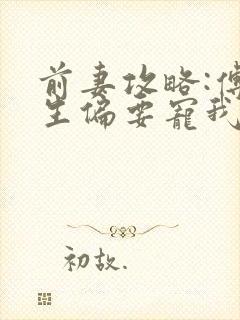 前妻攻略:傅
生偏要宠我
初故.